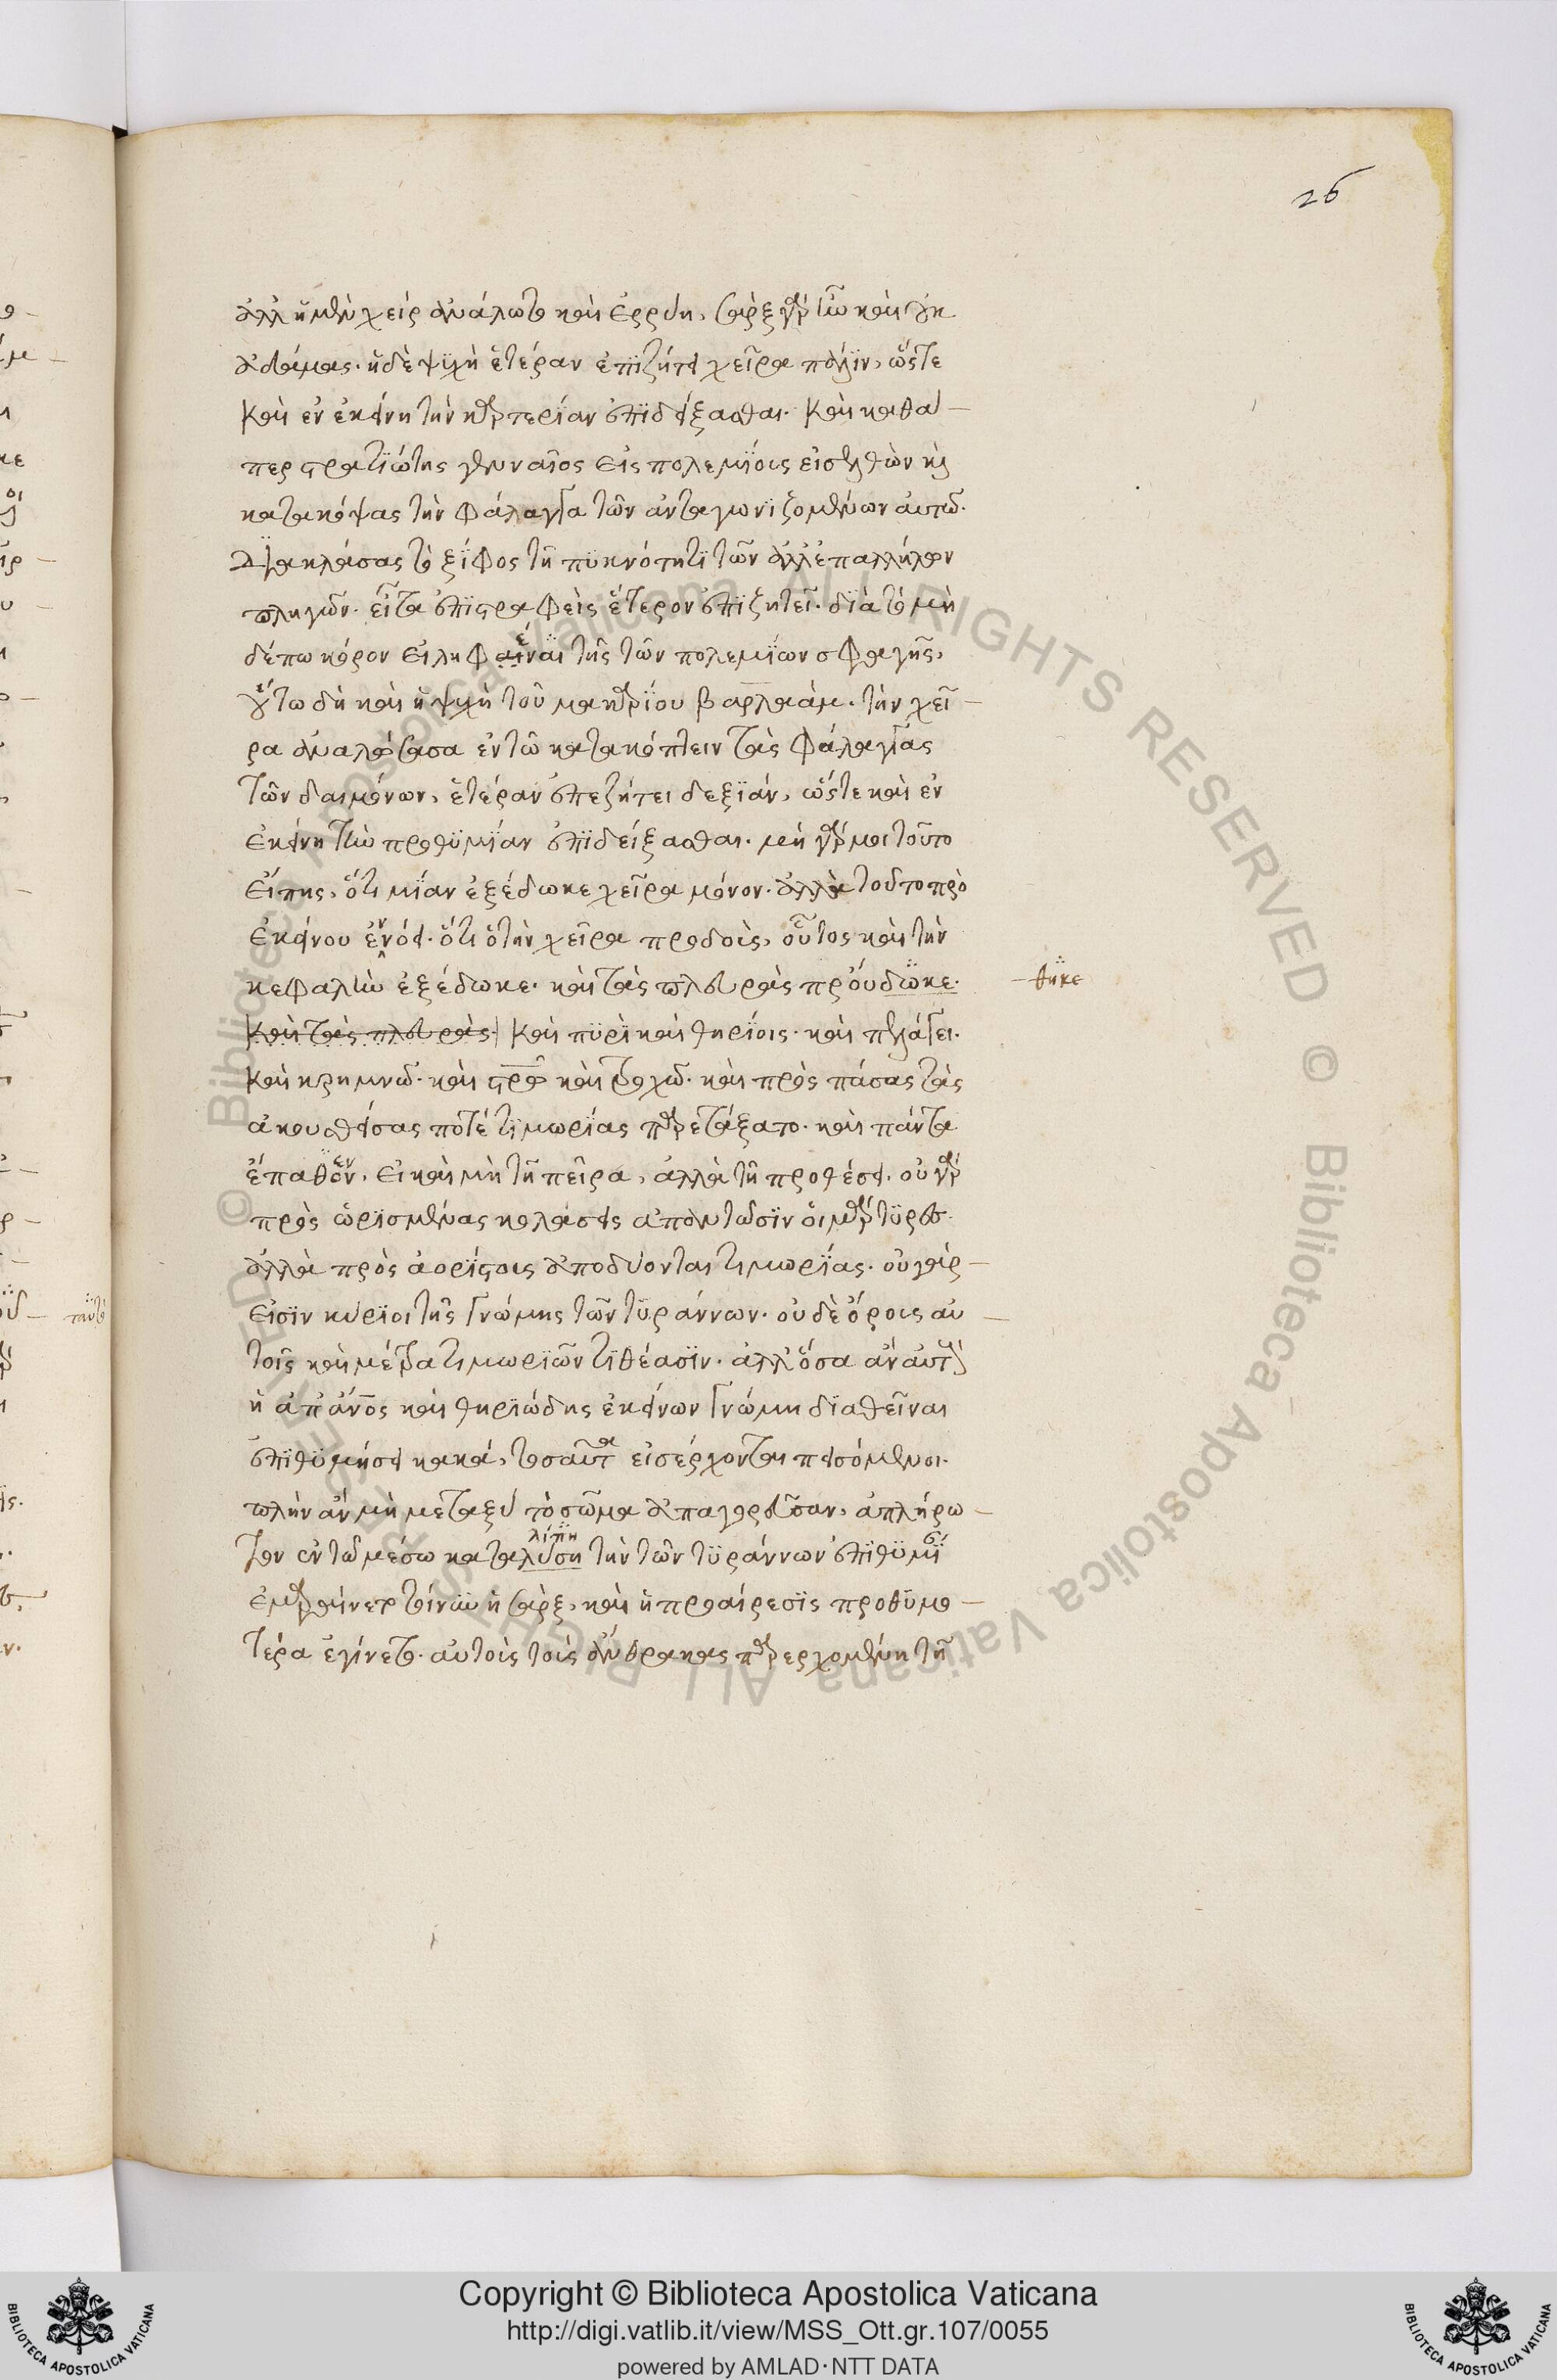 26
ἀλλ ἡ μὲν χεὶρ ἀνάλωτο καὶ ἐρρύη, σὰρξ γὰρ ἦν καὶ οὐκ
ἀδάμας. ἡ δὲ ψϋχὴ ἑτέραν ἐπϊζητεῖ χεῖρα πάλϊν, ὥστε
καὶ ἐν ἐκείνη τὴν καρτερίαν ἐπϊδείξασθαι. καὶ καθά
περ στρατϊώτης γενναῖος εἰς πολεμΐους εἰσελθὼν καὶ
κατακόψας τὴν φάλαγγα τῶν ἀνταγωνϊζομένων αὐτῶ.
διακλάσας τὸ ξΐφος τῆ πϋκνότητϊ τῶν ἀλλεπαλλήλων
πληγῶν. εἶτα ἐπϊστραφεὶς ἕτερον ἐπϊζητεῖ. δϊὰ τὸ μη
δέπω κόρον εἰληφαίναι τῆς τῶν πολεμΐων σφαγῆς,
έ
οὕτω δὴ καὶ ἡ ψυχὴ τοῦ μακαρΐου βαρλαὰμ. τὴν χεῖ
ρα ἀναλώσασα ἐν τῶ κατακόπτειν τὰς φάλαγγας
τῶν δαιμόνων, ἑτέραν ἐπεζήτει δεξϊάν, ὥστε καὶ ἐν
ἐκείνη τὴν προθϋμΐαν ἐπϊδείξασθαι. μὴ γάρ μοι τοῦτο
εἴπης, ὅτι μΐαν ἐξέδωκε χεῖρα μόνον. ἀλλὰ τοῦτο πρὸ
ἐκείνου ἐννόει. ὅτι ὁ τὴν χεῖρα προδοὺς, οὗτος καὶ τὴν
κεφαλὴν ἐξέδωκε. καὶ τὰς πλευρὰς προύδωκε. θηκε
καὶ τὰς πλευράς. καὶ πϋρὶ καὶ θηρΐοις. καὶ πελάγει.
καὶ κρημνῶ. καὶ στρῶ καὶ τροχῶ. καὶ πρὸς πάσας τὰς
ἀκουσθείσας ποτέ τϊμωρΐας παρετάξατο. καὶ πάντα
ἔπαθον, εἰ καὶ μὴ τῆ πεῖρα, ἀλλὰ τῆ προθέσει. οὐ γὰρ
εν
πρὸς ὡρϊσμένας κολάσεις ἀπολυτῶσϊν οἱ μάρτϋρες.
ἀλλὰ πρὸς ἀορΐστους ἀποδύονται τιμωρΐας. οὐ γάρ
εἰσϊν κύρϊοι τῆς γνώμης τῶν τϋράννων. οὐδὲ ὅρους αὐ
τοῖς καὶ μέτρα τιμωρϊῶν τϊθέασϊν. ἀλλ ὅσα ἂν αὐτὴ
ἡ ἀπάνος καὶ θηριώδης ἐκείνων γνώμη δϊαθεῖναι
ἐπϊθϋμήσει κακά, τοσαῦτα εἰσέρχονται πεισόμενοι.
πλὴν ἂν μὴ μεταξὺ τὸ σῶμα ἀπαγορεῦσαν, ἀπλήρω
τον ἐν τῶ μέσω καταλύση τὴν τῶν τϋράννων ἐπϊθϋμΐ
λίπη
ἐμαραίνετο τοίνυν ἡ σὰρξ, καὶ ἡ προαίρεσϊς προθϋμο
τέρα ἐγίνετο. αὐτοὺς τοὺς ἄνθρακας παρερχομένη τῆ